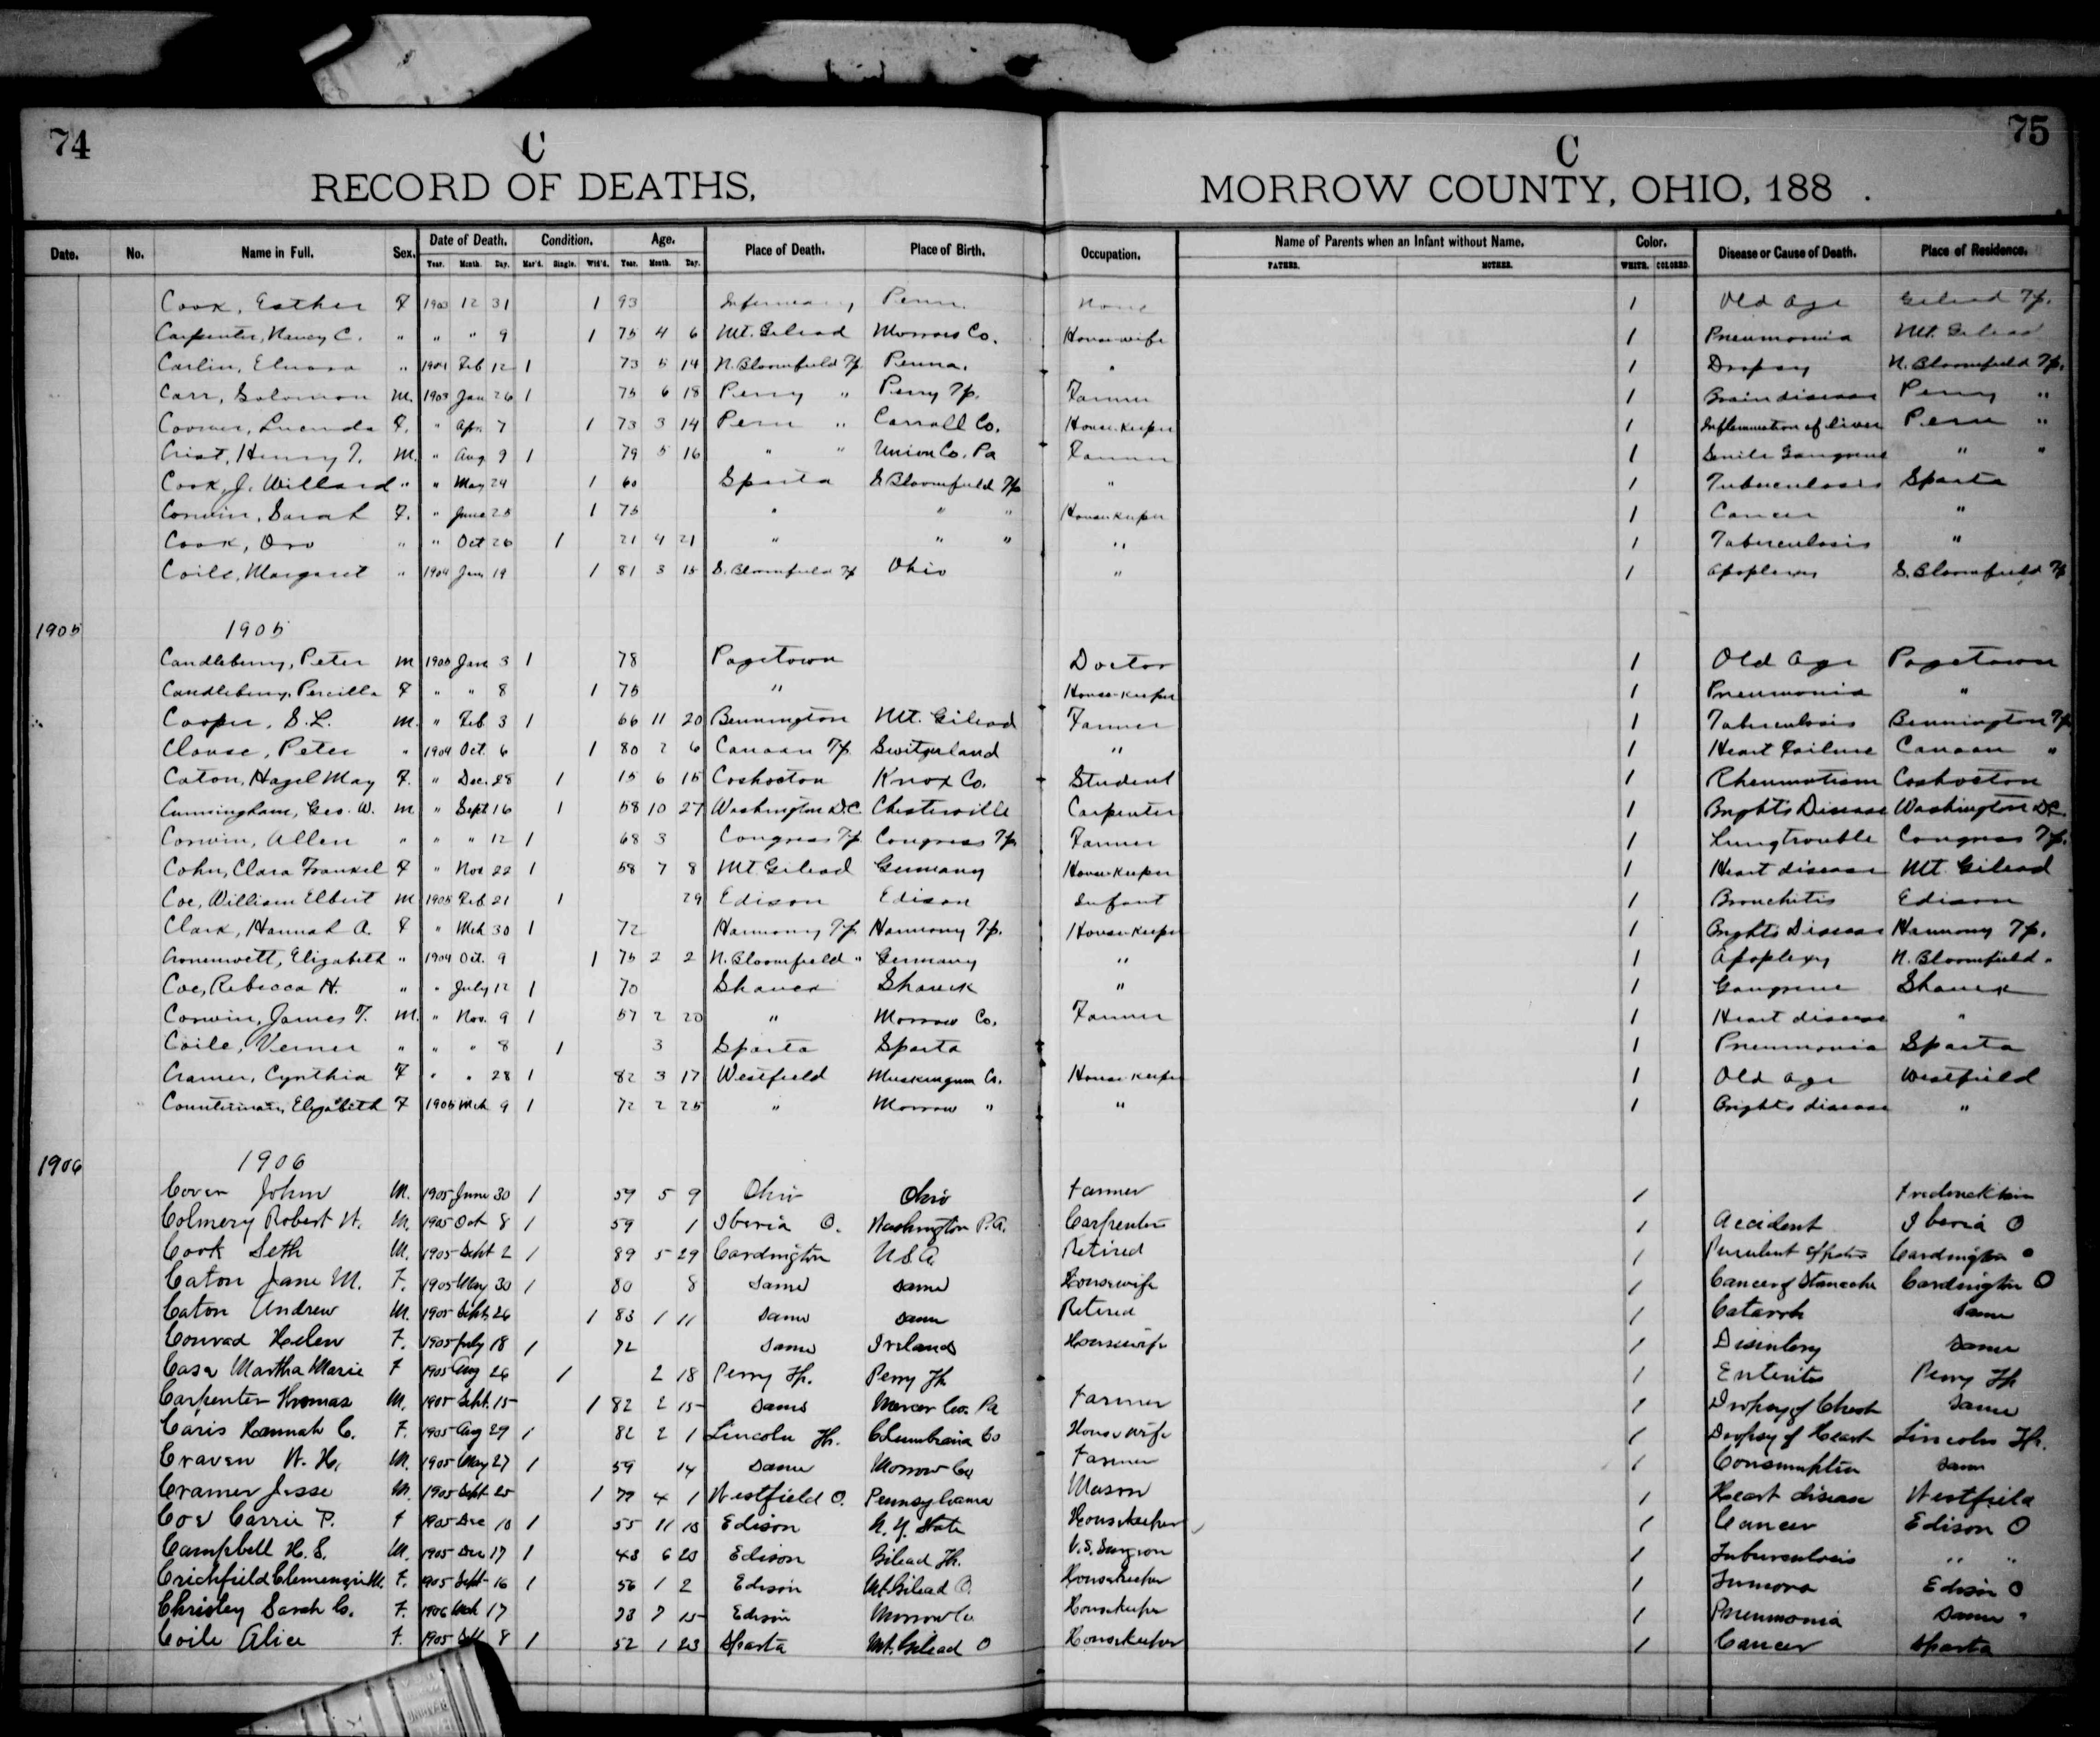 74 C C 75
RECORD OF DEATHS, MORROW COUNTY, OHIO, 188 .
Date. No. Name in Full. Sex. Date of Death. Condition. Age. Place of Death. Place of Birth. Occupation. Name of Parents when an Infant without Name. Color. Disease or Cause of Death. Place of Residence.
Year. Month. Day. Mar'd. Single. Wid'd. Year. Month. Day. FATHER. MOTHER. WHITE. COLORED.
Cook, Esther F 1903 12 31 1 93 Infirmary Penn. None 1 Old Age Gilead Tp.
Carpenter, Nancy C. " " " 9 1 75 4 6 Mt. Gilead Morrow Co. Housewife 1 Pneumonia Mt. Gilead
Carlin, " 1904 Feb 12 1 73 5 14 N. Bloomfield Tp. Penna. " 1 Dropsy N. Bloomfield Tp.
Carr, Solomon M. 1903 Jan 26 1 75 6 18 Perry " Perry Tp. Farmer 1 Brain disease Perry "
Lucinda F. " Apr. 7 1 73 3 14 Peru " Carroll Co. Housekeeper 1 Inflammation of liver Peru "
Crist, Henry T. M. " Aug 9 1 79 5 16 " " Union Co. Pa Farmer 1 Senile Gangrene " "
Cook, J. Willard " " May 24 1 60 Sparta S. Bloomfield Tp " 1 Tuberculosis Sparta
Corwin, Sarah F. " June 25 1 75 " " " Housekeeper 1 Cancer "
Cook, Oro " " Oct 26 1 21 4 21 " " " " 1 Tuberculosis "
Coile, Margaret " 1904 Jan 19 1 81 3 15 S. Bloomfield Tp Ohio " 1 Apoplexy S. Bloomfield Tp
1905 1905
Candleberry, Peter M 1905 Jan 3 1 78 Pagetown Doctor 1 Old Age Pagetown
Candleberry, Percilla F " " 8 1 75 " House-keeper 1 Pneumonia "
Cooper, S. L. M. " Feb 3 1 66 11 20 Bennington Mt. Gilead Farmer 1 Tuberculosis Bennington Tp
Clouse, Peter " 1904 Oct. 6 1 80 2 6 Canaan Tp. Switzerland " 1 Heart Failure Canaan "
Caton, Hazel May F. " Dec. 28 1 15 6 15 Coshocton Knox Co. Student 1 Rheumatism Coshocton
Cunningham, Geo. W. M " Sept 16 1 58 10 27 Washington D.C. Chesterville Carpenter 1 Brights Disease Washington D.C.
Corwin, Allen " " " 12 1 68 3 Congress Tp. Congress Tp. Farmer 1 Lung trouble Congress Tp.
Cohn, Clara Frankel F " Nov 22 1 58 7 8 Mt Gilead Germany Housekeeper 1 Heart disease Mt. Gilead
Coe, William Elbert M 1905 Feb. 21 1 29 Edison Edison Infant 1 Bronchitis Edison
Clark, Hannah A. F " Mch 30 1 72 Harmony Tp. Harmony Tp. House-keeper 1 Brights Disease Harmony Tp.
Cronenwett, Elizabeth " 1904 Oct. 9 1 75 2 2 N. Bloomfield " Germany " 1 Apoplexy N. Bloomfield "
Coe, Rebecca H. " " July 12 1 70 Shauck Shauck " 1 Gangrene Shauck
Corwin, James T. M. " Nov. 9 1 57 2 20 " Morrow Co. Farmer 1 Heart disease "
Coile, Verner " " " 8 1 3 Sparta Sparta 1 Pneumonia Sparta
Cramer, Cynthia F " " 28 1 82 3 17 Westfield Muskingum Co. Housekeeper 1 Old Age Westfield
Elizabeth F 1905 Mch 9 1 72 2 25 " Morrow " " 1 Brights disease "
1906 1906
Cover John M. 1905 June 30 1 59 5 9 Ohio Ohio Farmer 1
Colmery Robert M. 1905 Oct 8 1 59 1 Iberia O. Washington P.A. Carpenter 1 Accident Iberia O
Cook Seth M. 1905 Sept 2 1 89 5 29 Cardington U.S.A. Retired 1 Cardington O
Caton Jane M. F. 1905 May 30 1 80 8 Same Same Housewife 1 Cancer of Stomache Cardington O
Caton Andrew M. 1905 Sept. 26 1 83 1 11 Same Same Retired 1 Catarrh Same
Conrad Helen F. 1905 July 18 1 72 Same Ireland Housewife 1 Disintery Same
Case Martha Marie F 1905 Aug 26 1 2 18 Perry Tp. Perry Tp 1 Enteritis Perry Tp
Carpenter Thomas M. 1905 Sept. 15 1 82 2 15 Same Mercer Co. Pa Farmer 1 Dropsy of Chest Same
Caris Hannah C. F. 1905 Aug 29 1 82 2 1 Lincoln Tp. Columbiana Co Housewife 1 Dropsy of Heart Lincoln Tp.
Craven W. H. M. 1905 May 27 1 59 14 Same Morrow Co Farmer 1 Consumption Same
Cramer Jesse M. 1905 Sept 25 1 79 4 1 Westfield O. Pennsylvania Mason 1 Heart disease Westfield
Coe Carrie P. F 1905 Dec 10 1 55 11 10 Edison N.Y. State Housekeeper 1 Cancer Edison O
Campbell H. S. M. 1905 Dec 17 1 43 6 20 Edison Gilead Tp. V.S. Surgeon 1 Tuberculosis " "
Crichfield M. F. 1905 Sept 16 1 56 1 2 Edison Mt. Gilead O. Housekeeper 1 Tumora Edison O
Chrisley Sarah C. F. 1906 Mch 17 73 7 15 Edison Morrow Co Housekeeper 1 Pneumonia Same "
Coile Alice F. 1905 8 1 52 1 23 Sparta Mt. Gilead O Housekeeper 1 Cancer Sparta